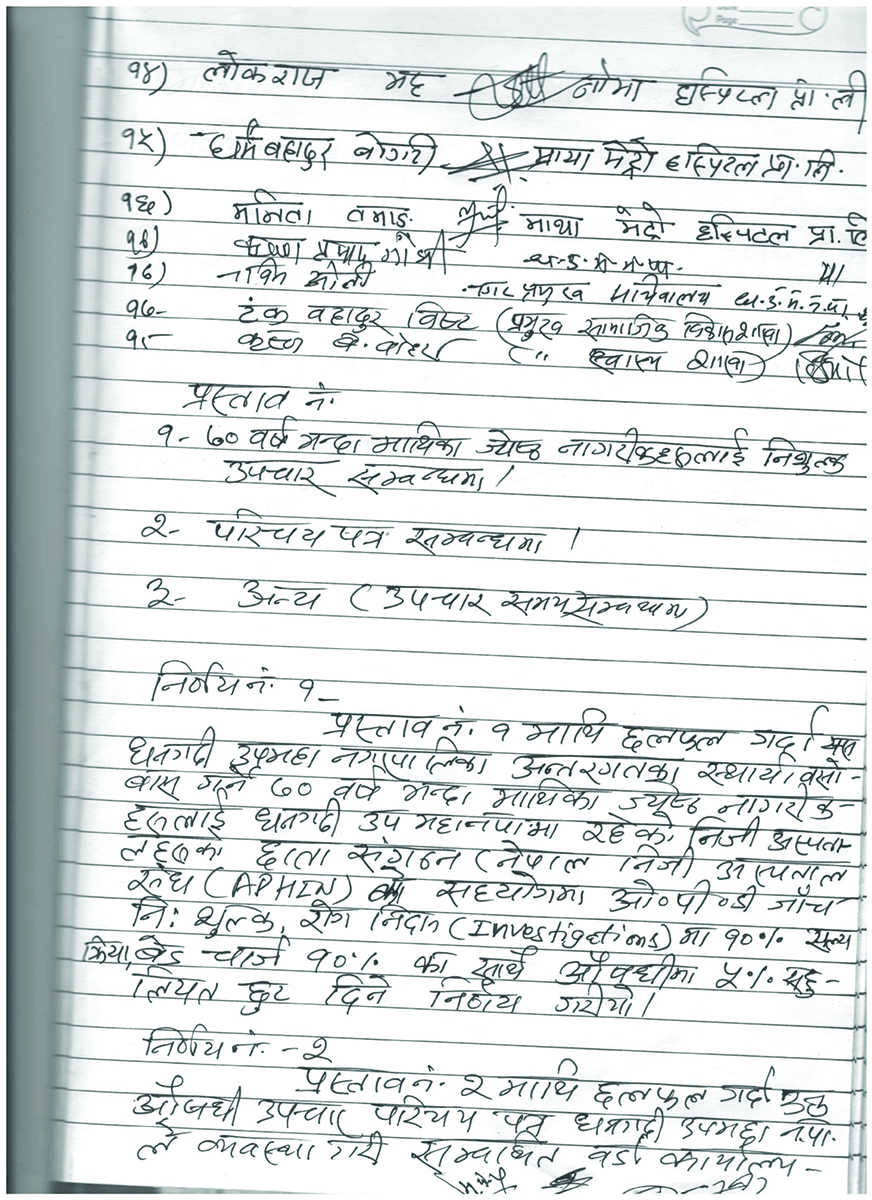 १४) लोकराज भट्ट नोमा हस्पिटल प्रा.ली
१५) धर्मबहादुर बोगटी माया मेट्रो हस्पिटल प्रा.लि.
१६) मनिता तमाङ माया मेट्रो हस्पिटल प्रा.लि
कृष्ण प्रसाद जोशी ध.उ.म.न.पा.
१६) ओली नगर प्रमुख सचिवालय ध.उ.म.न.पा.
१७- टंक बहादुर विष्ट (प्रमुख सामाजिक विकास शाखा)
१८- कृष्ण ब. बोहरा ( " स्वास्थ्य शाखा)
प्रस्ताव नं.
१- ७० वर्ष भन्दा माथिका ज्येष्ठ नागरीकहरुलाई निशुल्क
उपचार सम्वन्धमा ।
२- परिचय पत्र सम्वन्धमा ।
३- अन्य (उपचार समय सम्वन्धमा)
निर्णय नं. १-
प्रस्ताव नं. १ माथि छलफल गर्दा यस
धनगढी उपमहानगरपालिका अन्तरगतका स्थायी वसो-
बास गर्ने ७० वर्ष भन्दा माथिका ज्येष्ठ नागरीक-
हरुलाई धनगढी उप महानपामा रहेका निजी अस्पता-
लहरुको छाता संगठन (नेपाल निजी अस्पताल
संघ (APHIN) को सहयोगमा ओ०पी०डी जाँच
नि: शुल्क, रोग निदान (Investigations) मा १०% शल्य
क्रिया, बेड चार्ज १०% का साथै औषधीमा ५% सहु-
लियत छुट दिने निर्णय गरीयो ।
निर्णय नं. -२
प्रस्ताव नं. २ माथि छलफल गर्दा उक्त
औषधी उपचार परिचय पत्र धनगढी उपमहा न.पा.
ले व्यवस्था गरी सम्वन्धित वडा कार्यालय-